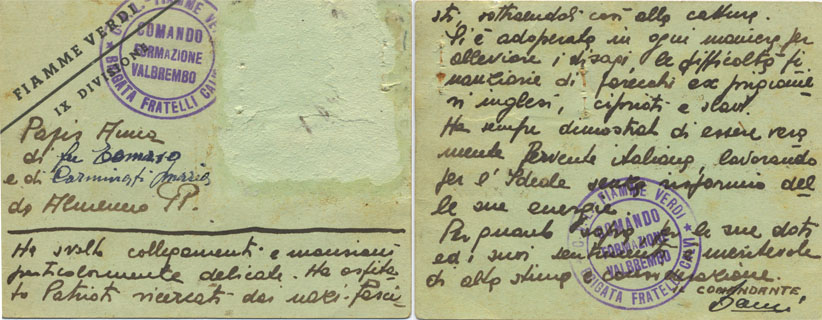 FIAMME VERDI
IX DIVISIONE
FIAMME VERDI
COMANDO
FORMAZIONE
VALBREMBO
BRIGATA FRATELLI CALVI
Papis Anna
di fu Tomaso
e di Carminati Maria
da Almenno
Ha svolto collegamenti e mansioni
particolarmente delicate. Ha ospita
to Patrioti ricercati dai nazi-fasci
sti, sottraendoli così alla cattura.
Si è adoperata in ogni maniera per
alleviare i disagi le difficoltà fi
nanziarie di parecchi ex prigionie
ri inglesi, ciprioti e slavi.
Ha sempre dimostrato di essere vera
mente fervente italiana, lavorando
per l'Ideale senza risparmio del
le sue energie.
Per quanto sopra, per le sue doti
ed i suoi sentimenti è meritevole
di alta stima e considerazione.
FIAMME VERDI
COMANDO
FORMAZIONE
VALBREMBO
BRIGATA FRATELLI CALVI
IL COMANDANTE